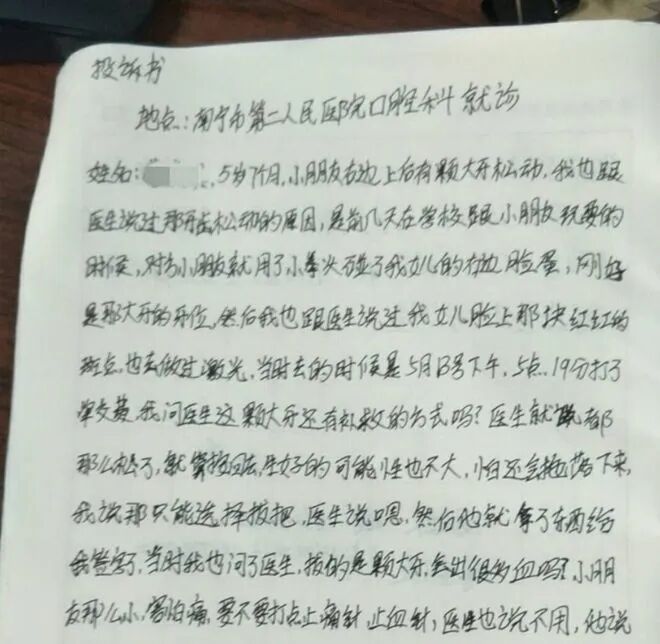 投诉书
地点:南宁市第二人民医院口腔科就诊
姓名: ,5岁7个月,小朋友右边上后有颗大牙松动,我也跟
医生说过那牙齿松动的原因,是前几天在学校跟小朋友玩耍的
时候,对方小朋友就用了小拳头碰了我女儿的右边脸蛋,刚好
是那大牙的牙位,然后我也跟医生说过我女儿脸上那块红红的
斑点,也去做过激光,当时去的时候是5月13号下午,5点19分打了
麻药,我问医生这颗大牙还有补救的方式吗?医生就说都
那么松了,就算按回去,生好的可能性也不大,
我说那只能选择拔把,医生说嗯,然后他就拿了东西给
我签字,当时我也问了医生,拔的是颗大牙,会出很多血吗?小朋
友那么小,害怕痛,要不要打点止痛针,止血针,医生也说不用,他说